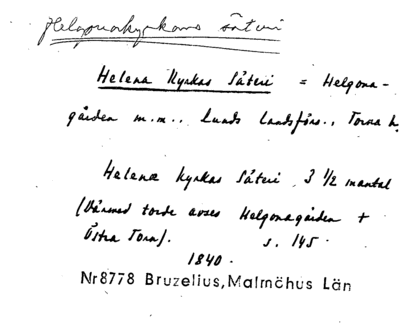 Helgonakyrkans säteri
Helena Kyrkas Säteri = Helgona-
gården m.m., Lunds landsförs., Torna h.
Helenæ Kyrkas Säteri 3 1/2 mantal
(Härmed torde avses Helgonagården +
Östra Torn). s. 145.
1840.
Nr8778 Bruzelius, Malmöhus Län